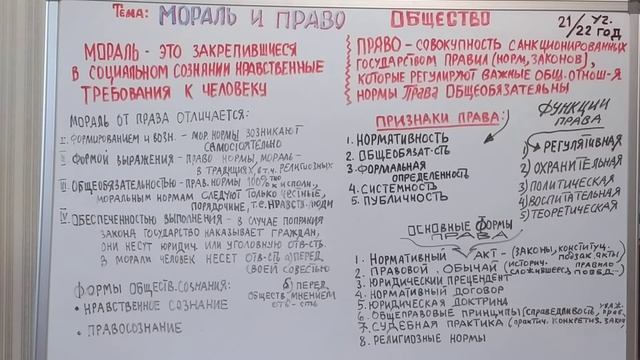 Тема: МОРАЛЬ И ПРАВО
ОБЩЕСТВО
21/22 уч. год
МОРАЛЬ - ЭТО ЗАКРЕПИВШИЕСЯ
В СОЦИАЛЬНОМ СОЗНАНИИ НРАВСТВЕННЫЕ
ТРЕБОВАНИЯ К ЧЕЛОВЕКУ
МОРАЛЬ ОТ ПРАВА ОТЛИЧАЕТСЯ:
I. ФОРМИРОВАНИЕМ И ВОЗН. - МОР. НОРМЫ ВОЗНИКАЮТ
САМОСТОЯТЕЛЬНО
II. ФОРМОЙ ВЫРАЖЕНИЯ - ПРАВО НОРМЫ, МОРАЛЬ -
В ТРАДИЦИЯХ, В Т.Ч. РЕЛИГИОЗНЫХ
III. ОБЩЕОБЯЗАТЕЛЬНОСТЬЮ - ПРАВ. НОРМЫ 100%
МОРАЛЬНЫМ НОРМАМ СЛЕДУЮТ ТОЛЬКО ЧЕСТНЫЕ,
ПОРЯДОЧНЫЕ, Т.Е. НРАВСТВ. ЛЮДИ
IV. ОБЕСПЕЧЕННОСТЬЮ ВЫПОЛНЕНИЯ - В СЛУЧАЕ ПОПРАНИЯ
ЗАКОНА ГОСУДАРСТВО НАКАЗЫВАЕТ ГРАЖДАН,
ОНИ НЕСУТ ЮРИДИЧ. ИЛИ УГОЛОВНУЮ ОТВ-СТЬ.
В МОРАЛИ ЧЕЛОВЕК НЕСЕТ ОТВ-СТЬ а) ПЕРЕД
СВОЕЙ СОВЕСТЬЮ
б) ПЕРЕД
ОБЩЕСТВ. МНЕНИЕМ
ОТВ-СТЬ
ФОРМЫ ОБЩЕСТВ. СОЗНАНИЯ:
• НРАВСТВЕННОЕ СОЗНАНИЕ
• ПРАВОСОЗНАНИЕ
ПРАВО - СОВОКУПНОСТЬ САНКЦИОНИРОВАННЫХ
ГОСУДАРСТВОМ ПРАВИЛ (НОРМ, ЗАКОНОВ),
КОТОРЫЕ РЕГУЛИРУЮТ ВАЖНЫЕ ОБЩ. ОТНОШ-Я
НОРМЫ ПРАВА ОБЩЕОБЯЗАТЕЛЬНЫ
ПРИЗНАКИ ПРАВА:
1. НОРМАТИВНОСТЬ
2. ОБЩЕОБЯЗАТ-СТЬ
3. ФОРМАЛЬНАЯ
ОПРЕДЕЛЕННОСТЬ
4. СИСТЕМНОСТЬ
5. ПУБЛИЧНОСТЬ
ФУНКЦИИ
ПРАВА
1) РЕГУЛЯТИВНАЯ
2) ОХРАНИТЕЛЬНАЯ
3) ПОЛИТИЧЕСКАЯ
4) ВОСПИТАТЕЛЬНАЯ
5) ТЕОРЕТИЧЕСКАЯ
ОСНОВНЫЕ ФОРМЫ
ПРАВА
1. НОРМАТИВНЫЙ АКТ - (ЗАКОНЫ, КОНСТИТУЦ.
ПОДЗАК АКТЫ)
2. ПРАВОВОЙ ОБЫЧАЙ (ИСТОРИЧ. ПРАВИЛО
СЛОЖИВШЕЕСЯ, ПОВЕД-)
3. ЮРИДИЧЕСКИЙ ПРЕЦЕДЕНТ
4. НОРМАТИВНЫЙ ДОГОВОР
5. ЮРИДИЧЕСКАЯ ДОКТРИНА
6. ОБЩЕПРАВОВЫЕ ПРИНЦИПЫ (СПРАВЕДЛИВОСТЬ,
7. СУДЕБНАЯ ПРАКТИКА (ПРАКТИЧ. КОНКРЕТИЗ.
8. РЕЛИГИОЗНЫЕ НОРМЫ